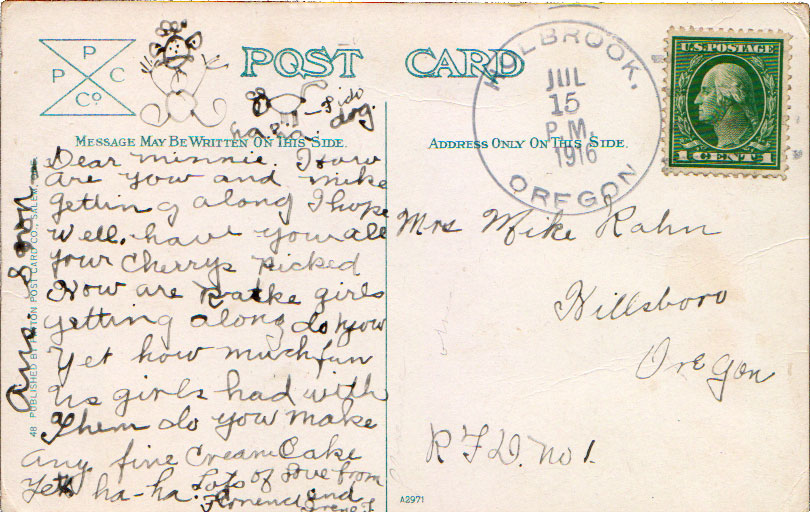 P
P C
Co
POST CARD
—Fido
dog.
ha-ha-
MESSAGE MAY BE WRITTEN ON THIS SIDE.
Dear Minnie. How
are you and mike
getting along I hope
well. have you all
your Cherrys picked
How are the girls
getting along do you
Yet how much fun
us girls had with
Them do you make
any fine Cream Cake
Yet ha-ha. Lots of love from
Florence and
Irene J.
Ans. Soon
48 PUBLISHED BY POST CARD CO., SALEM,
ADDRESS ONLY ON THIS SIDE.
HOLBROOK,
JUL
15
P.M.
1916
OREGON
U.S. POSTAGE
1 CENT 1
Mrs Mike Kahn
Hillsboro
Oregon
R F D. No 1.
A2971